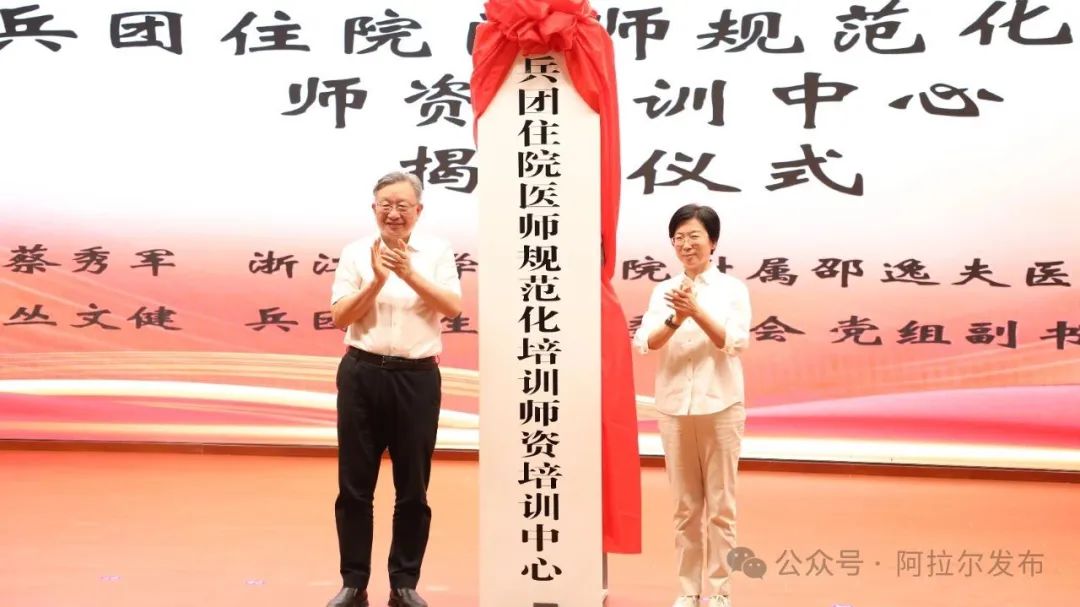 兵团住院 师规范化
师资 训中心
揭 仪式
蔡秀军 浙江 学 院附属邵逸夫医
丛文健 兵团 生 会党组副书
兵团住院医师规范化培训师资培训中心
公众号 · 阿拉尔发布